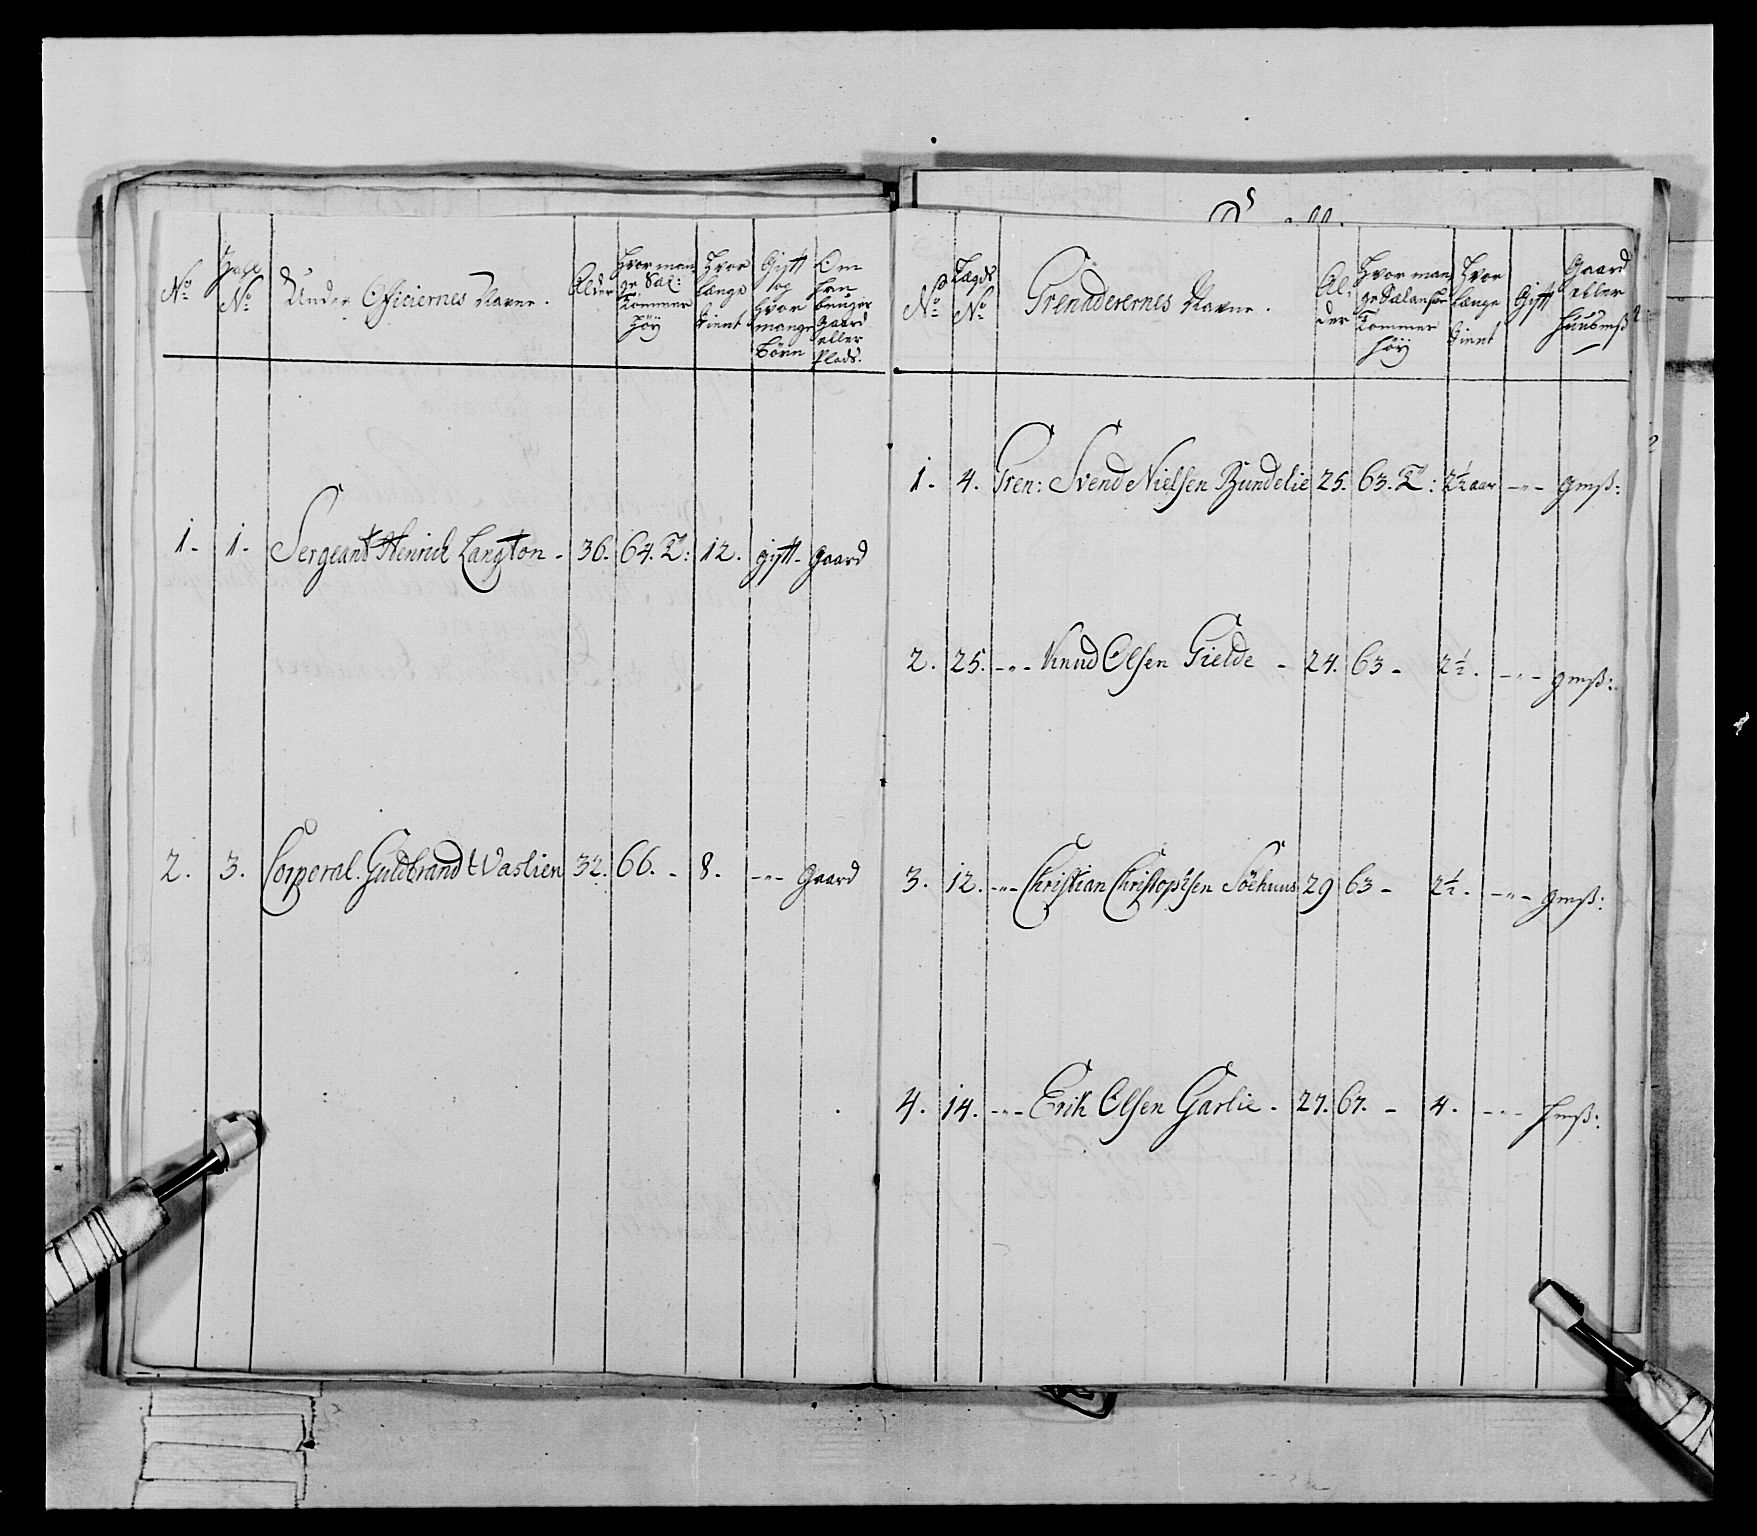 No
No
Under Officiernes Navne.
Alder
Hvor man
ge Sæl:
Tommer
Höÿ
Hvor
længe
tient
Gift
og
hvor
mange
Börn
Om
han
bruger
Gaard
eller
Plads.
1. 1. Sergeant Henrich Langton - 36. 64. T: 12. gift - Gaard
2. 3. Corporal. Guldbrand Waslien 32. 66. - 8. -"- Gaard
No
Lægds
No
Grenaderernes Navne.
Al,
der
Hvor man
ge Sælanske
Tommer
höÿ
Hvor
længe
tient
Gift
Gaard
eller
Huusmß
1. 4. Gren: Svend Nielsen Bundelie 25. 63. T: 2½ aar -"- gmß:
2. 25. -"- Knud Olsen Gielde - 24. 63 - 2½. -"- gmß:
3. 12. -"- Christian Christophsen Söehuus 29 63 - 2½. -"- gmß:
4. 14. -"- Erik Olsen Garlie - 27. 67. - 4. -"- hmß: